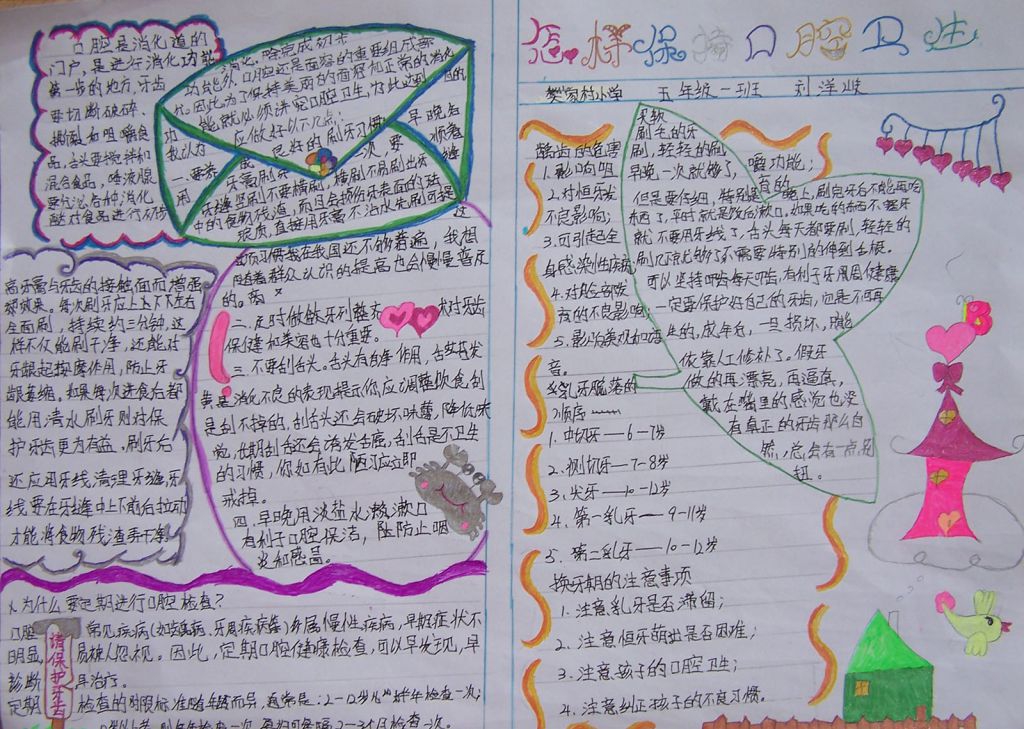 口腔是消化道的
门户，是进行消化功能
第一步的地方，牙齿
要切断破碎、
撕裂和咀嚼食
品，舌头要搅拌和
混合食品，唾液混
功能外，口腔还是面容的重要组成部
化。因此为了保持美丽的面容和正常的消化
功能就必须讲究口腔卫生，为此
我认为应做好以下几点：
一、要养 良好的刷牙习惯，早晚各
一次，要顺着
牙缝竖刷牙不要横刷，横刷不易刷出牙缝
中的食物残渣，而且会损伤牙表面的珐
琅质，直接用牙膏不沾水先刷可提
高牙膏与牙齿的接触面而增强
都效果。每次刷牙应上上下下左右
全面刷，持续约三分钟，这
样不仅能刷干净，还能对
牙龈起按摩作用，防止牙
龈萎缩，如果每次进食后都
能用清水刷牙则对保
护牙齿更为有益，刷牙后
还应用牙线，清理牙缝，牙
线要在牙缝中上下前后拉动
才能将食物残渣弄干净
这项习惯我在我国还不够普遍，我想
随着群众认识的提高也会慢慢普及
的。
二、定时做
保健和美容也十分重要。
三、不要刮舌头。舌头有自净作用，舌苔若发
黄是消化不良的表现提示你应调整饮食刮
是刮不掉的，刮舌头还会破坏味蕾，降低味
觉，长期刮舌还会诱发舌癌，刮舌是不卫生
的习惯，你如有此陋习应立即
戒掉。
四、早晚用淡盐水漱漱口
有利于口腔保洁，防止咽
炎和感冒。
1.为什么要定期进行口腔检查？
口腔 常见疾病（如龋病、牙周疾病等）多属慢性疾病，早期症状不
明显 易被人忽视。因此，定期口腔健康检查，可以早发现，早
诊断 早治疗。
定期 检查的时限标准随年龄而异，通常是：2-12岁
请保护牙齿
怎样保持口腔卫生
樊家村小学 五年级一班 刘洋
龋齿的危害
1.影响咀嚼功能；
2.对恒牙发育的
不良影响；
3.可引起全
身感染性疾病
4.对脸部发
育的不良影响；
5.影响美观和
音。
乳牙脱落的
顺序——
1.中切牙—6-7岁
2.侧切牙—7-8岁
3.尖牙—10-12岁
4.第一乳牙—9-11岁
5.第二乳牙—10-12岁
换牙期的注意事项
1.注意乳牙是否滞留；
2.注意恒牙萌出是否困难；
3.注意孩子的口腔卫生；
4.注意纠正孩子的不良习惯。
买软
刷毛的牙
刷，轻轻的刷
早晚一次就够了，
但是要仔细，特别是晚上，刷完牙后不能再吃
东西了，平时就是饭后漱口，如果吃的东西不塞牙
就不要用牙线了，舌头每天都要刷，轻轻的
刷几下就够了不需要特别的伸到舌根。
可以坚持叩齿每天叩齿，有利于牙周围健康
一定要保护好自己的牙齿，它是不可再
生的，成年后，一旦损坏，只能
依靠人工修补了。假牙
做的再漂亮，再逼真，
戴在嘴里的感觉也没
有真正的牙齿那么自
然，总会有一点别
扭。